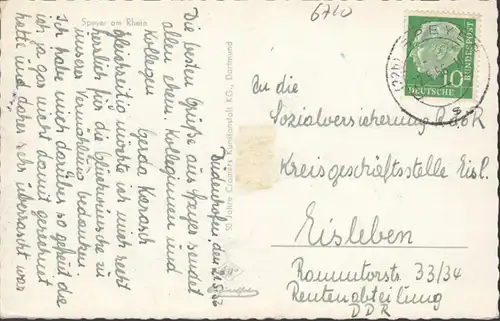 Speyer am Rhein
6720
Die besten Grüße aus Speyer sendet
allen ehem. Kolleginnen und
Kollegen
Gerda
Gleichzeitig möchte ich mich recht
herzlich für die Glückwünsche zu
unserer Vermählung bedanken.
Ich habe mich darüber so gefreut, da
ich ja gar nicht damit gerechnet
hatte und daher sehr überrascht war
Dudenhofen, den
50 Jahre Cramers Kunstanstalt KG., Dortmund
SPEY
10
DEUTSCHE
BUNDESPOST
An die
Sozialversicherung
Kreisgeschäftsstelle Eisl.
Eisleben
Rammtorstr. 33/34
Rentenabteilung
DDR